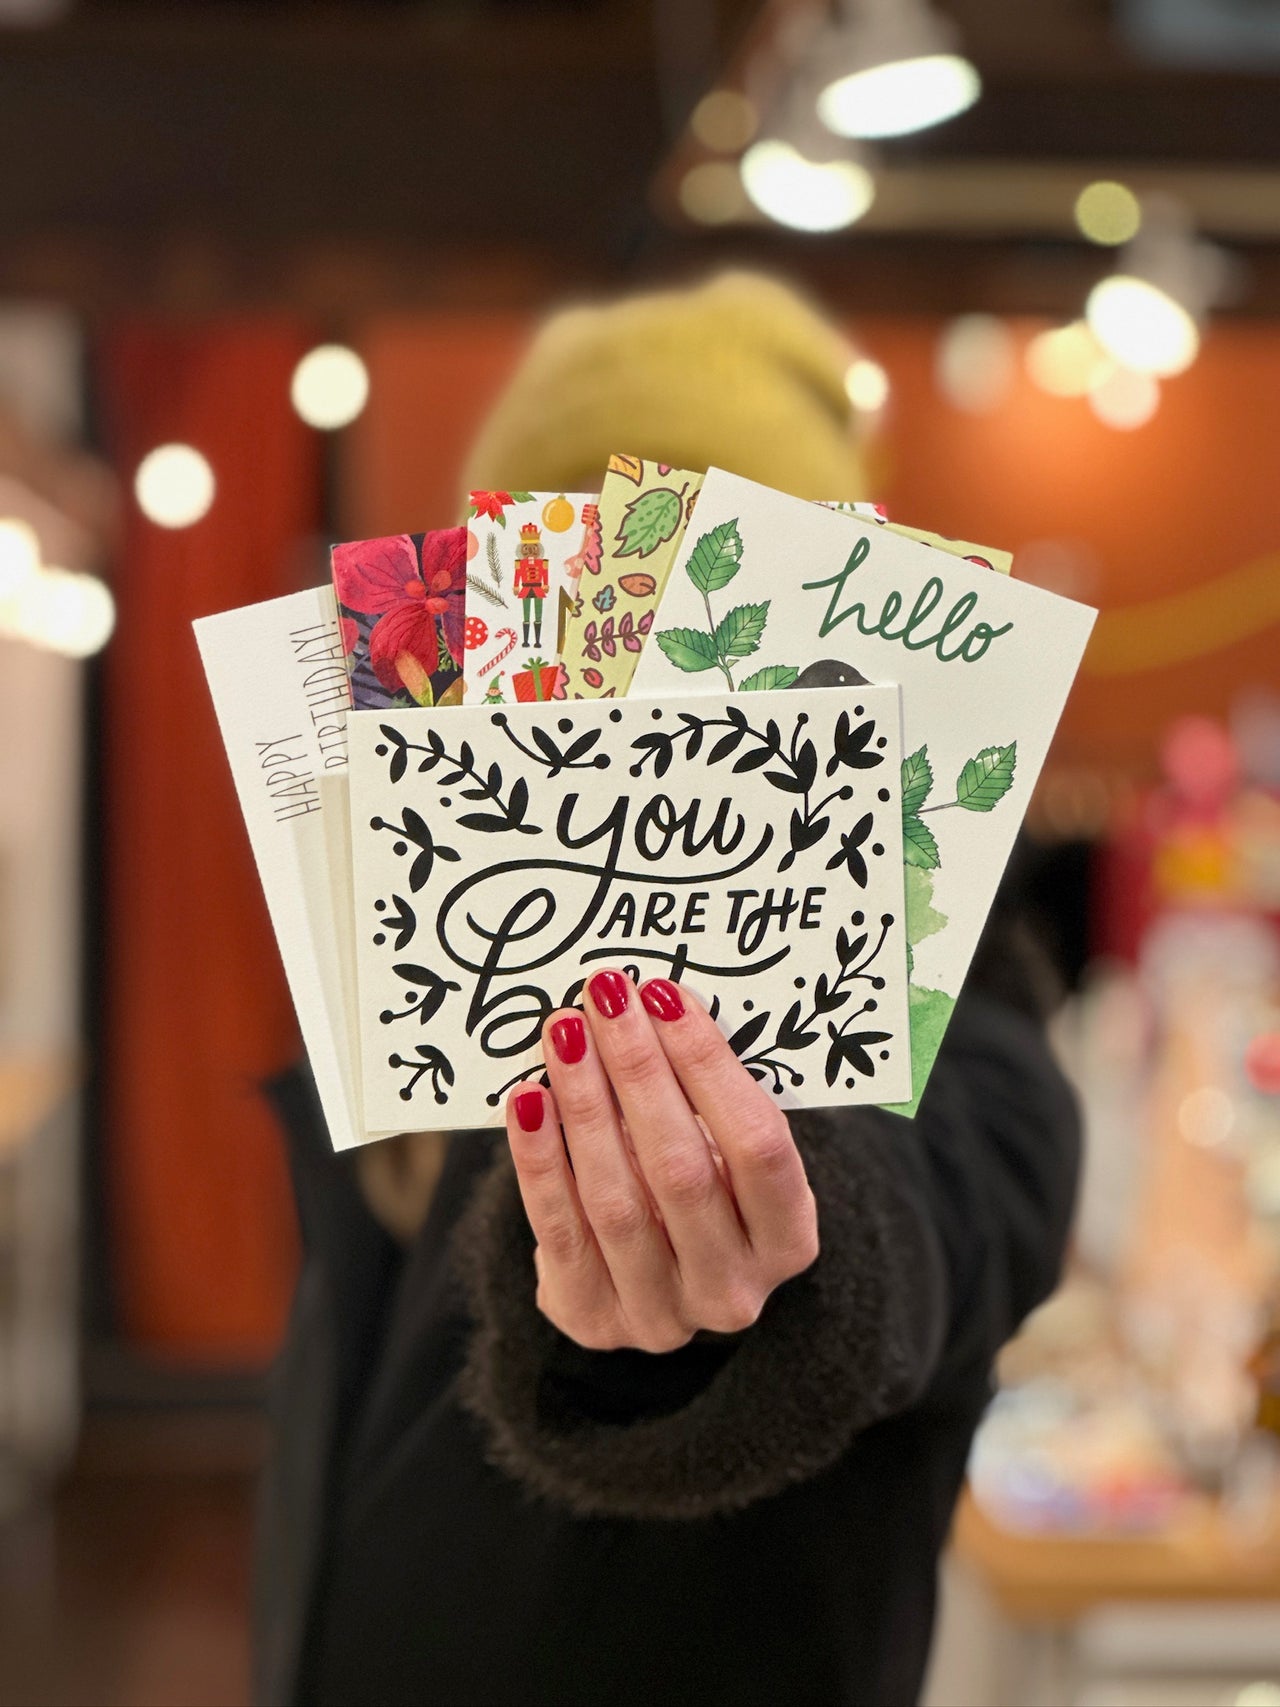 HAPPY
BIRTHDAY!
hello
you
ARE THE